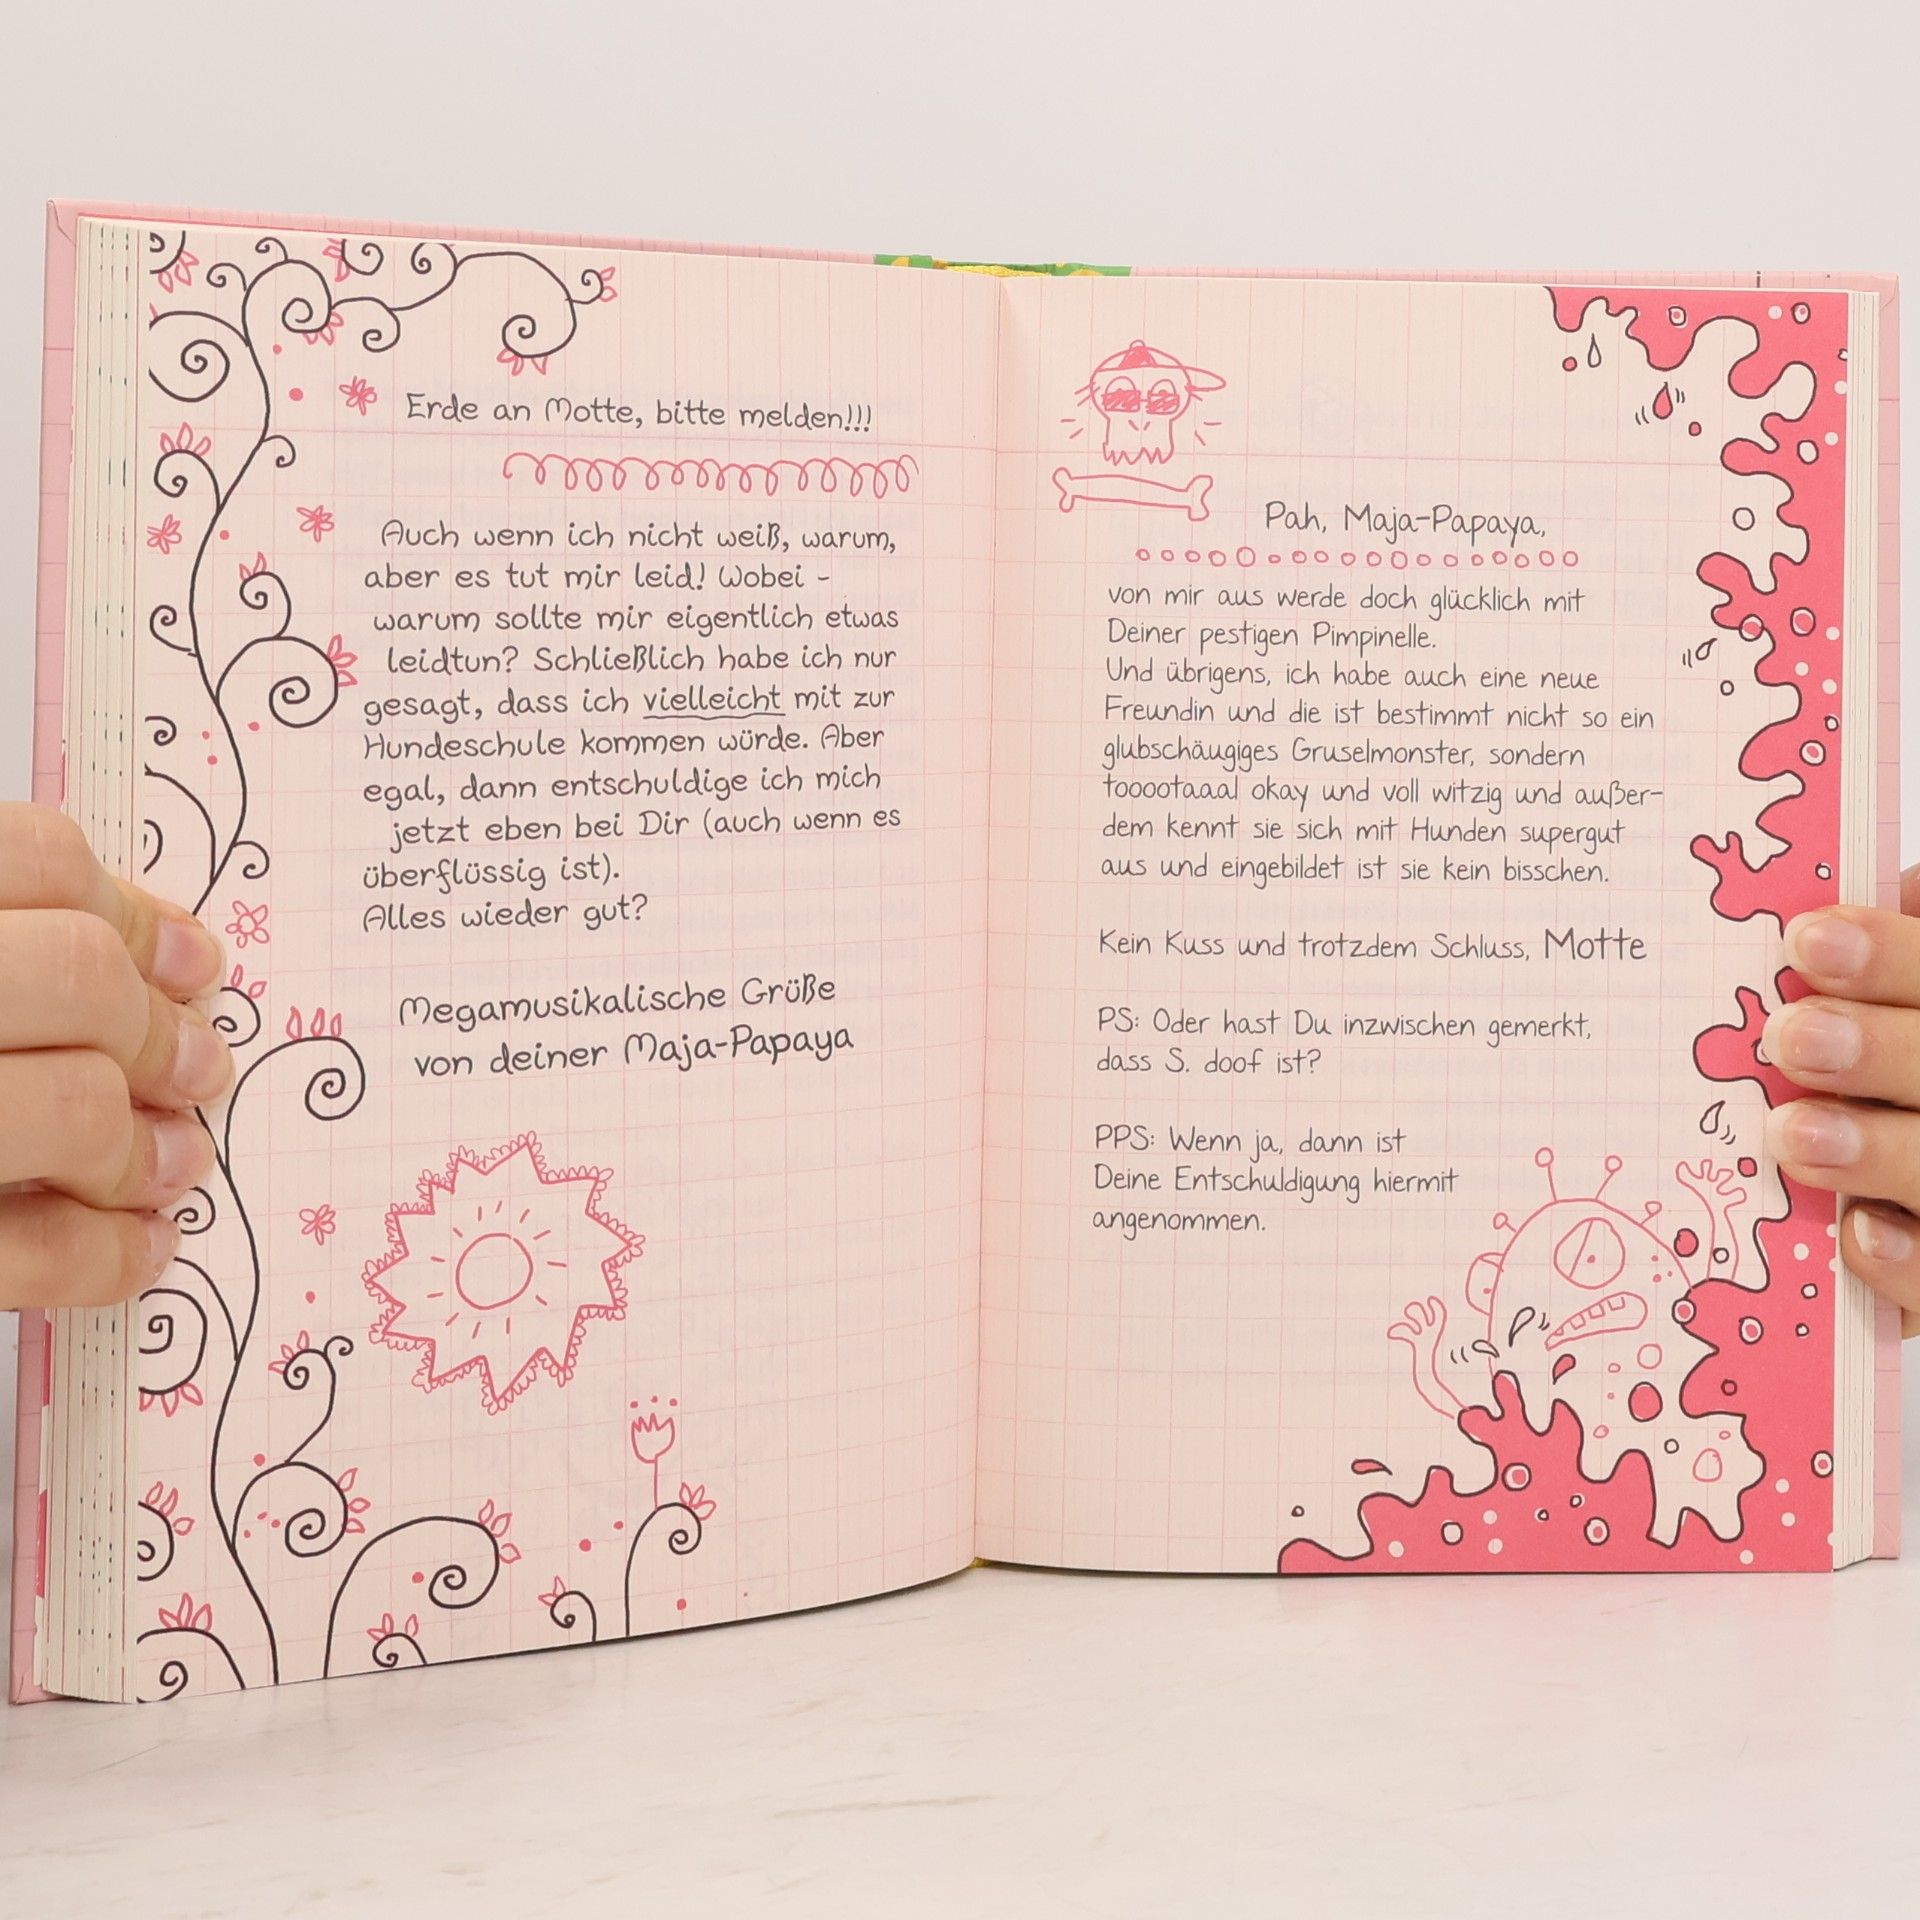 Erde an Motte, bitte melden!!!
Auch wenn ich nicht weiß, warum,
aber es tut mir leid! Wobei -
warum sollte mir eigentlich etwas
leidtun? Schließlich habe ich nur
gesagt, dass ich vielleicht mit zur
Hundeschule kommen würde. Aber
egal, dann entschuldige ich mich
jetzt eben bei Dir (auch wenn es
überflüssig ist).
Alles wieder gut?
Megamusikalische Grüße
von deiner Maja-Papaya
Pah, Maja-Papaya,
von mir aus werde doch glücklich mit
Deiner pestigen Pimpinelle.
Und übrigens, ich habe auch eine neue
Freundin und die ist bestimmt nicht so ein
glubschäugiges Gruselmonster, sondern
tooootaaal okay und voll witzig und außer-
dem kennt sie sich mit Hunden supergut
aus und eingebildet ist sie kein bisschen.
Kein Kuss und trotzdem Schluss, Motte
PS: Oder hast Du inzwischen gemerkt,
dass S. doof ist?
PPS: Wenn ja, dann ist
Deine Entschuldigung hiermit
angenommen.